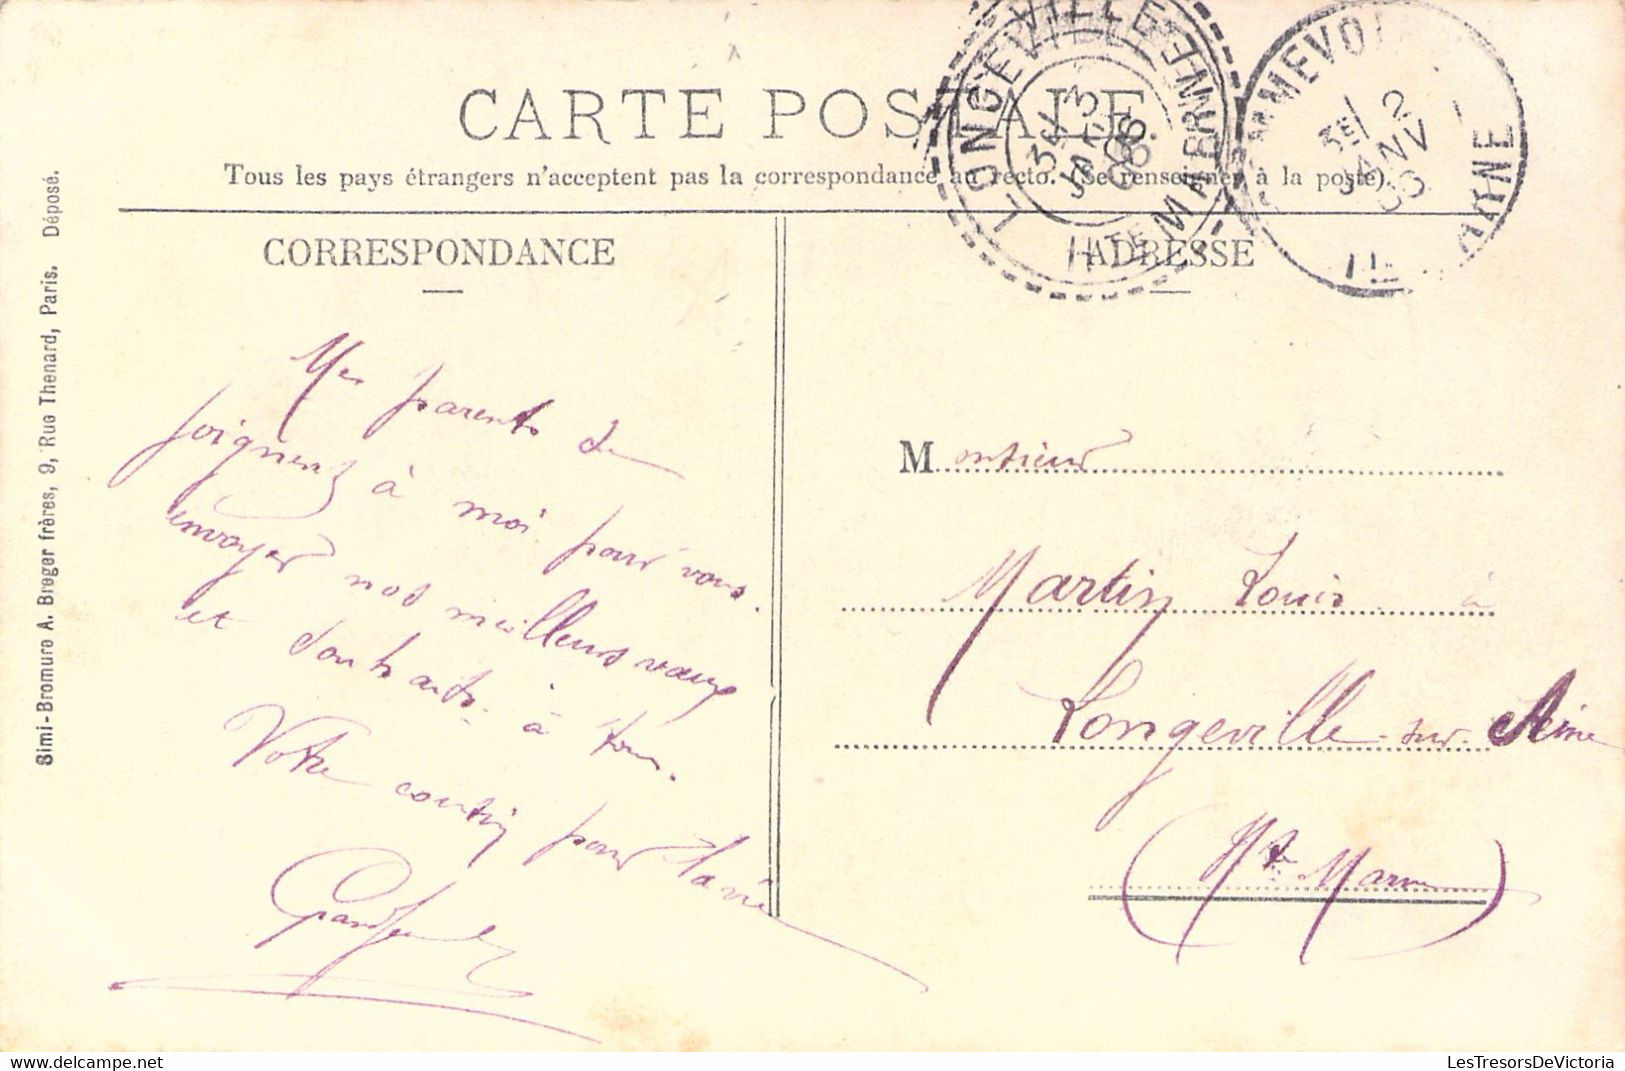 CARTE POSTALE
Tous les pays étrangers n'acceptent pas la correspondance au recto. (Se renseigner à la poste).
CORRESPONDANCE
ADRESSE
LONGEVILLE
HTE MARNE
3
JANV
06
2
JANV
06
Simi-Bromure A. Breger frères, 9, Rue Thenard, Paris. Déposé.
Mes parents se
joignent à moi pour vous
envoyer nos meilleurs vœux
et souhaits à tous.
Votre cousin pour la vie
Monsieur
Martin Louis à
Longeville-sur-Aine
(Hte Marne)
LesTresorsDeVictoria